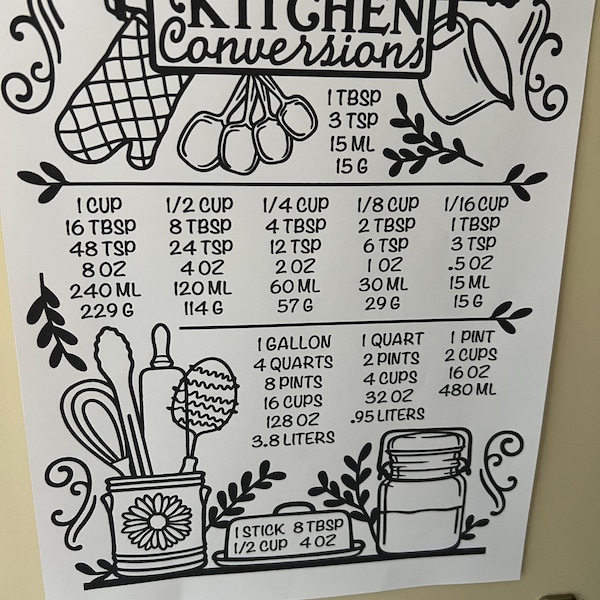 KITCHEN
Conversions
1 TBSP
3 TSP
15 ML
15 G
1 CUP
16 TBSP
48 TSP
8 OZ
240 ML
229 G
1/2 CUP
8 TBSP
24 TSP
4 OZ
120 ML
114 G
1/4 CUP
4 TBSP
12 TSP
2 OZ
60 ML
57 G
1/8 CUP
2 TBSP
6 TSP
1 OZ
30 ML
29 G
1/16 CUP
1 TBSP
3 TSP
.5 OZ
15 ML
15 G
1 GALLON
4 QUARTS
8 PINTS
16 CUPS
128 OZ
3.8 LITERS
1 QUART
2 PINTS
4 CUPS
32 OZ
.95 LITERS
1 PINT
2 CUPS
16 OZ
480 ML
1 STICK 8 TBSP
1/2 CUP 4 OZ